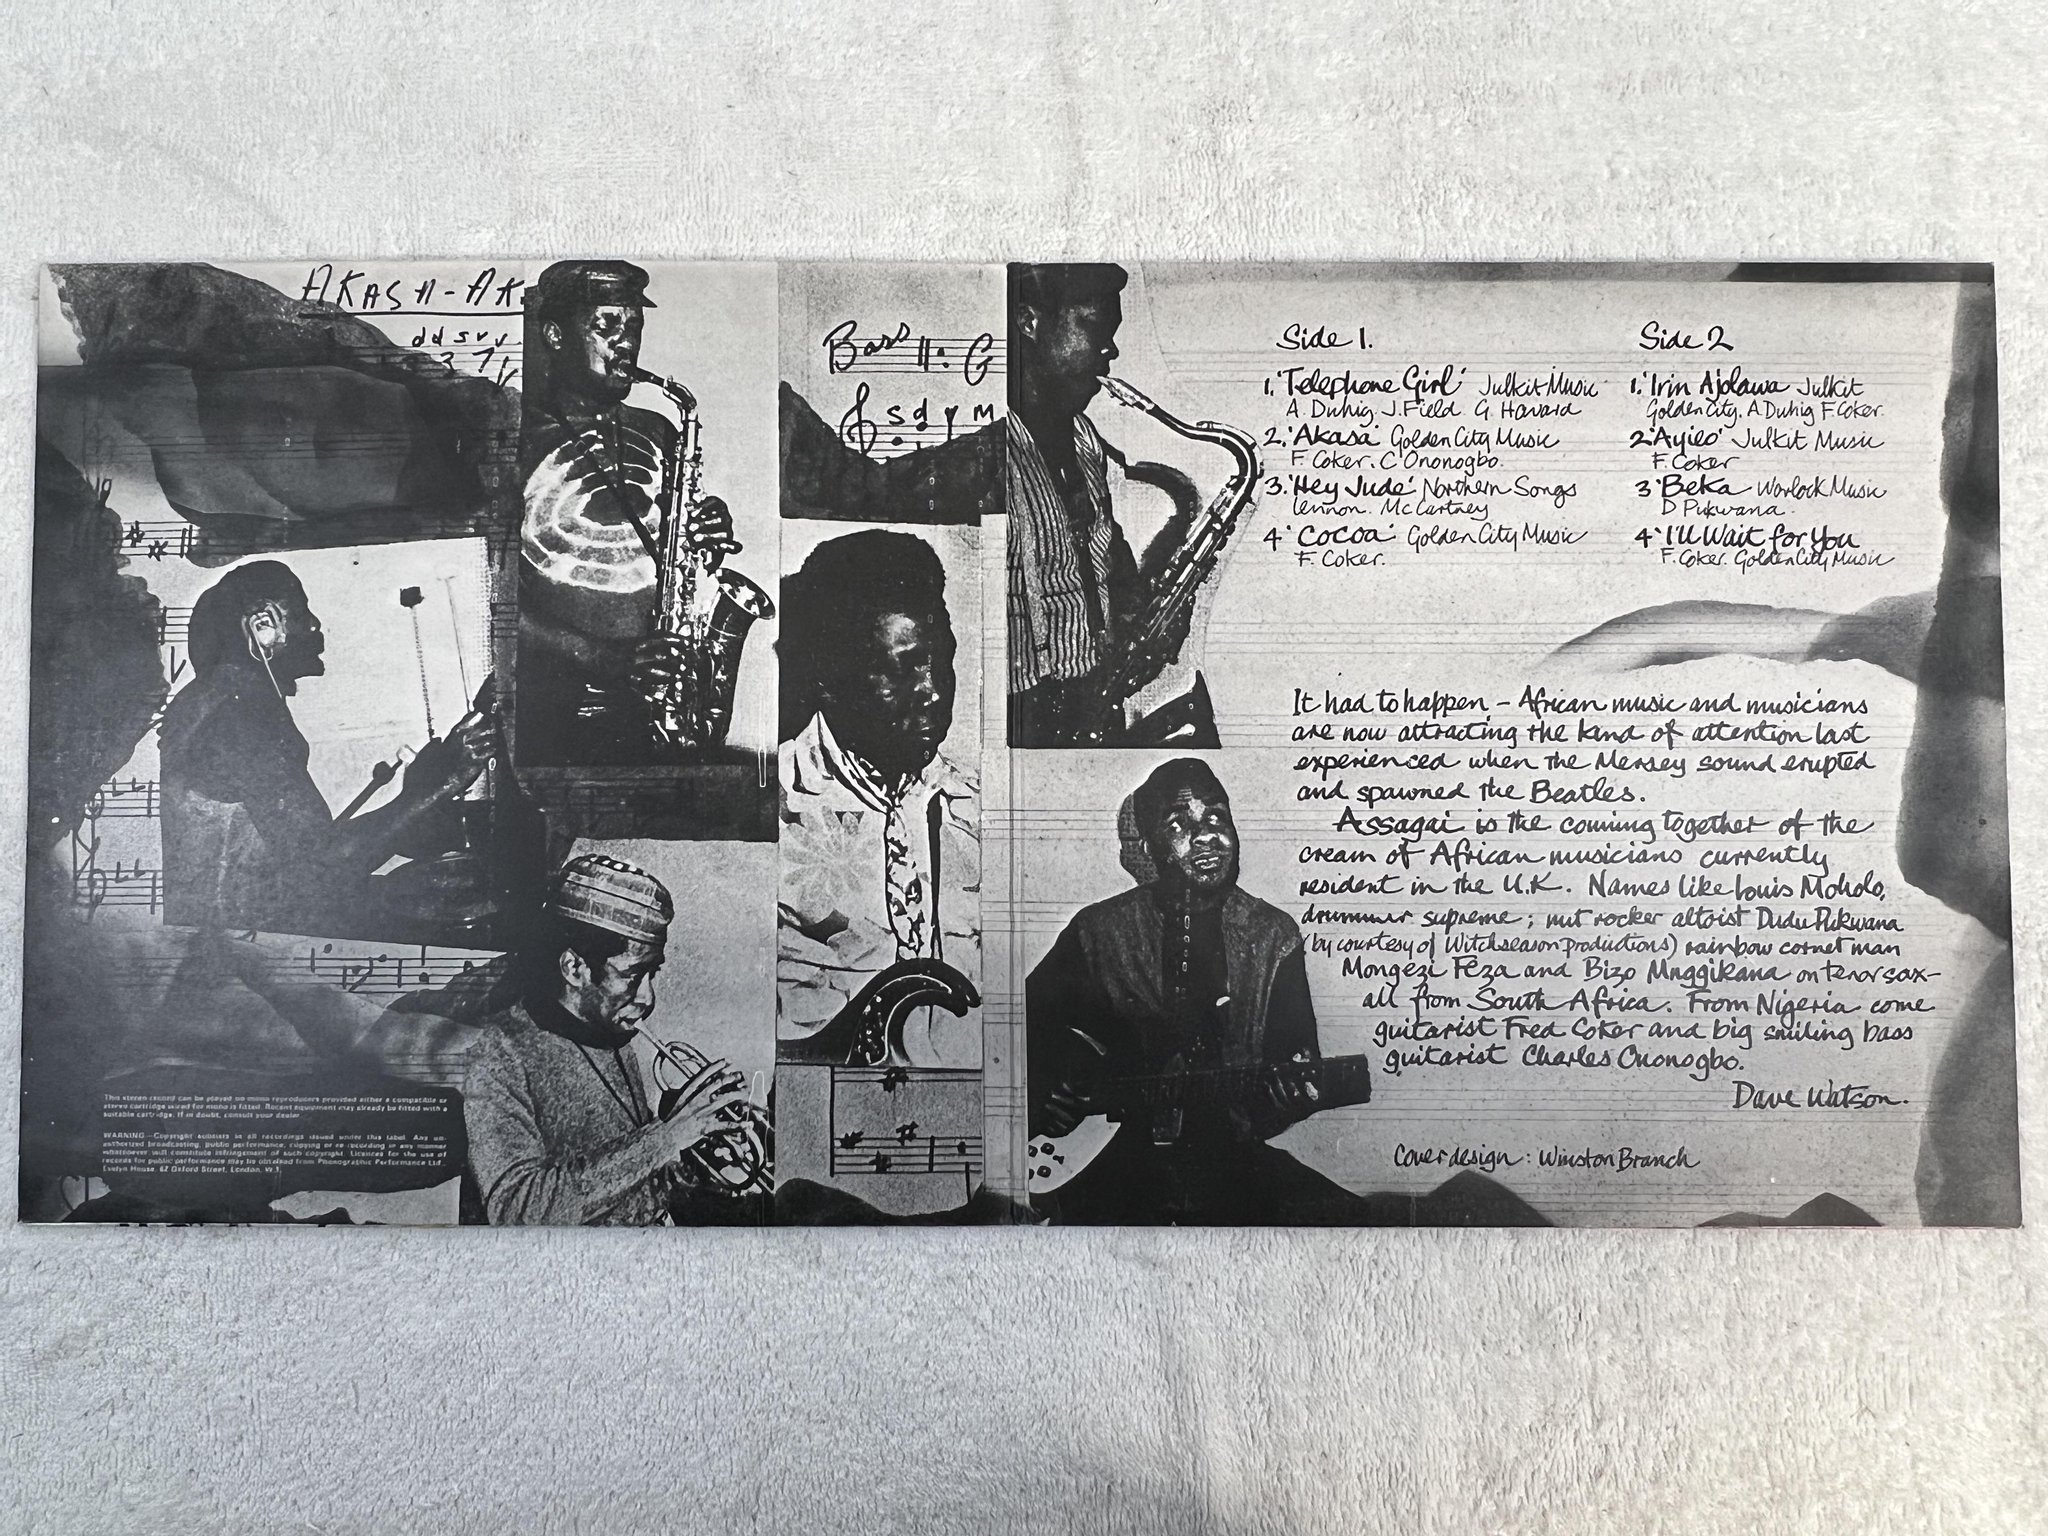 AKASA-AK
d d s v v
Bass G
s d v M
This stereo record can be played on mono reproducers provided either a compatible or
stereo cartridge wired for mono is fitted. Recent equipment may already be fitted with a
suitable cartridge. If in doubt, consult your dealer.
WARNING—Copyright subsists in all recordings issued under this label. Any un-
authorized broadcasting, public performance, copying or re-recording in any manner
whatsoever will constitute infringement of such copyright. Licences for the use of
records for public performance may be obtained from Phonographic Performance Ltd.,
Evelyn House, 62 Oxford Street, London, W.1.
Side 1.
1. 'Telephone Girl' Julkit Music
A. Duhig J. Field G. Havard
2. 'Akasa' Golden City Music
F. Coker. C Ononogbo.
3. 'Hey Jude' Northern Songs
Lennon. McCartney
4 'Cocoa' Golden City Music
F. Coker.
Side 2
1. 'Irin Ajolawa Julkit
Golden City. A Duhig F Coker.
2 'Ayieo' Julkit Music
F. Coker
3 'Beka Warlock Music
D Pukwana.
4 'I'll Wait for You
F. Coker. Golden City Music
It had to happen – African music and musicians
are now attracting the kind of attention last
experienced when the Mersey sound erupted
and spawned the Beatles.
Assagai is the coming together of the
cream of African musicians currently
resident in the U.K. Names like Louis Moholo,
drummer supreme; nut rocker altoist Dudu Pukwana
(by courtesy of Witchseason Productions) rainbow cornet man
Mongezi Feza and Bizo Mnggikana on tenor sax-
all from South Africa. From Nigeria come
guitarist Fred Coker and big smiling bass
guitarist Charles Ononogbo.
Dave Watson.
Cover design : Winston Branch